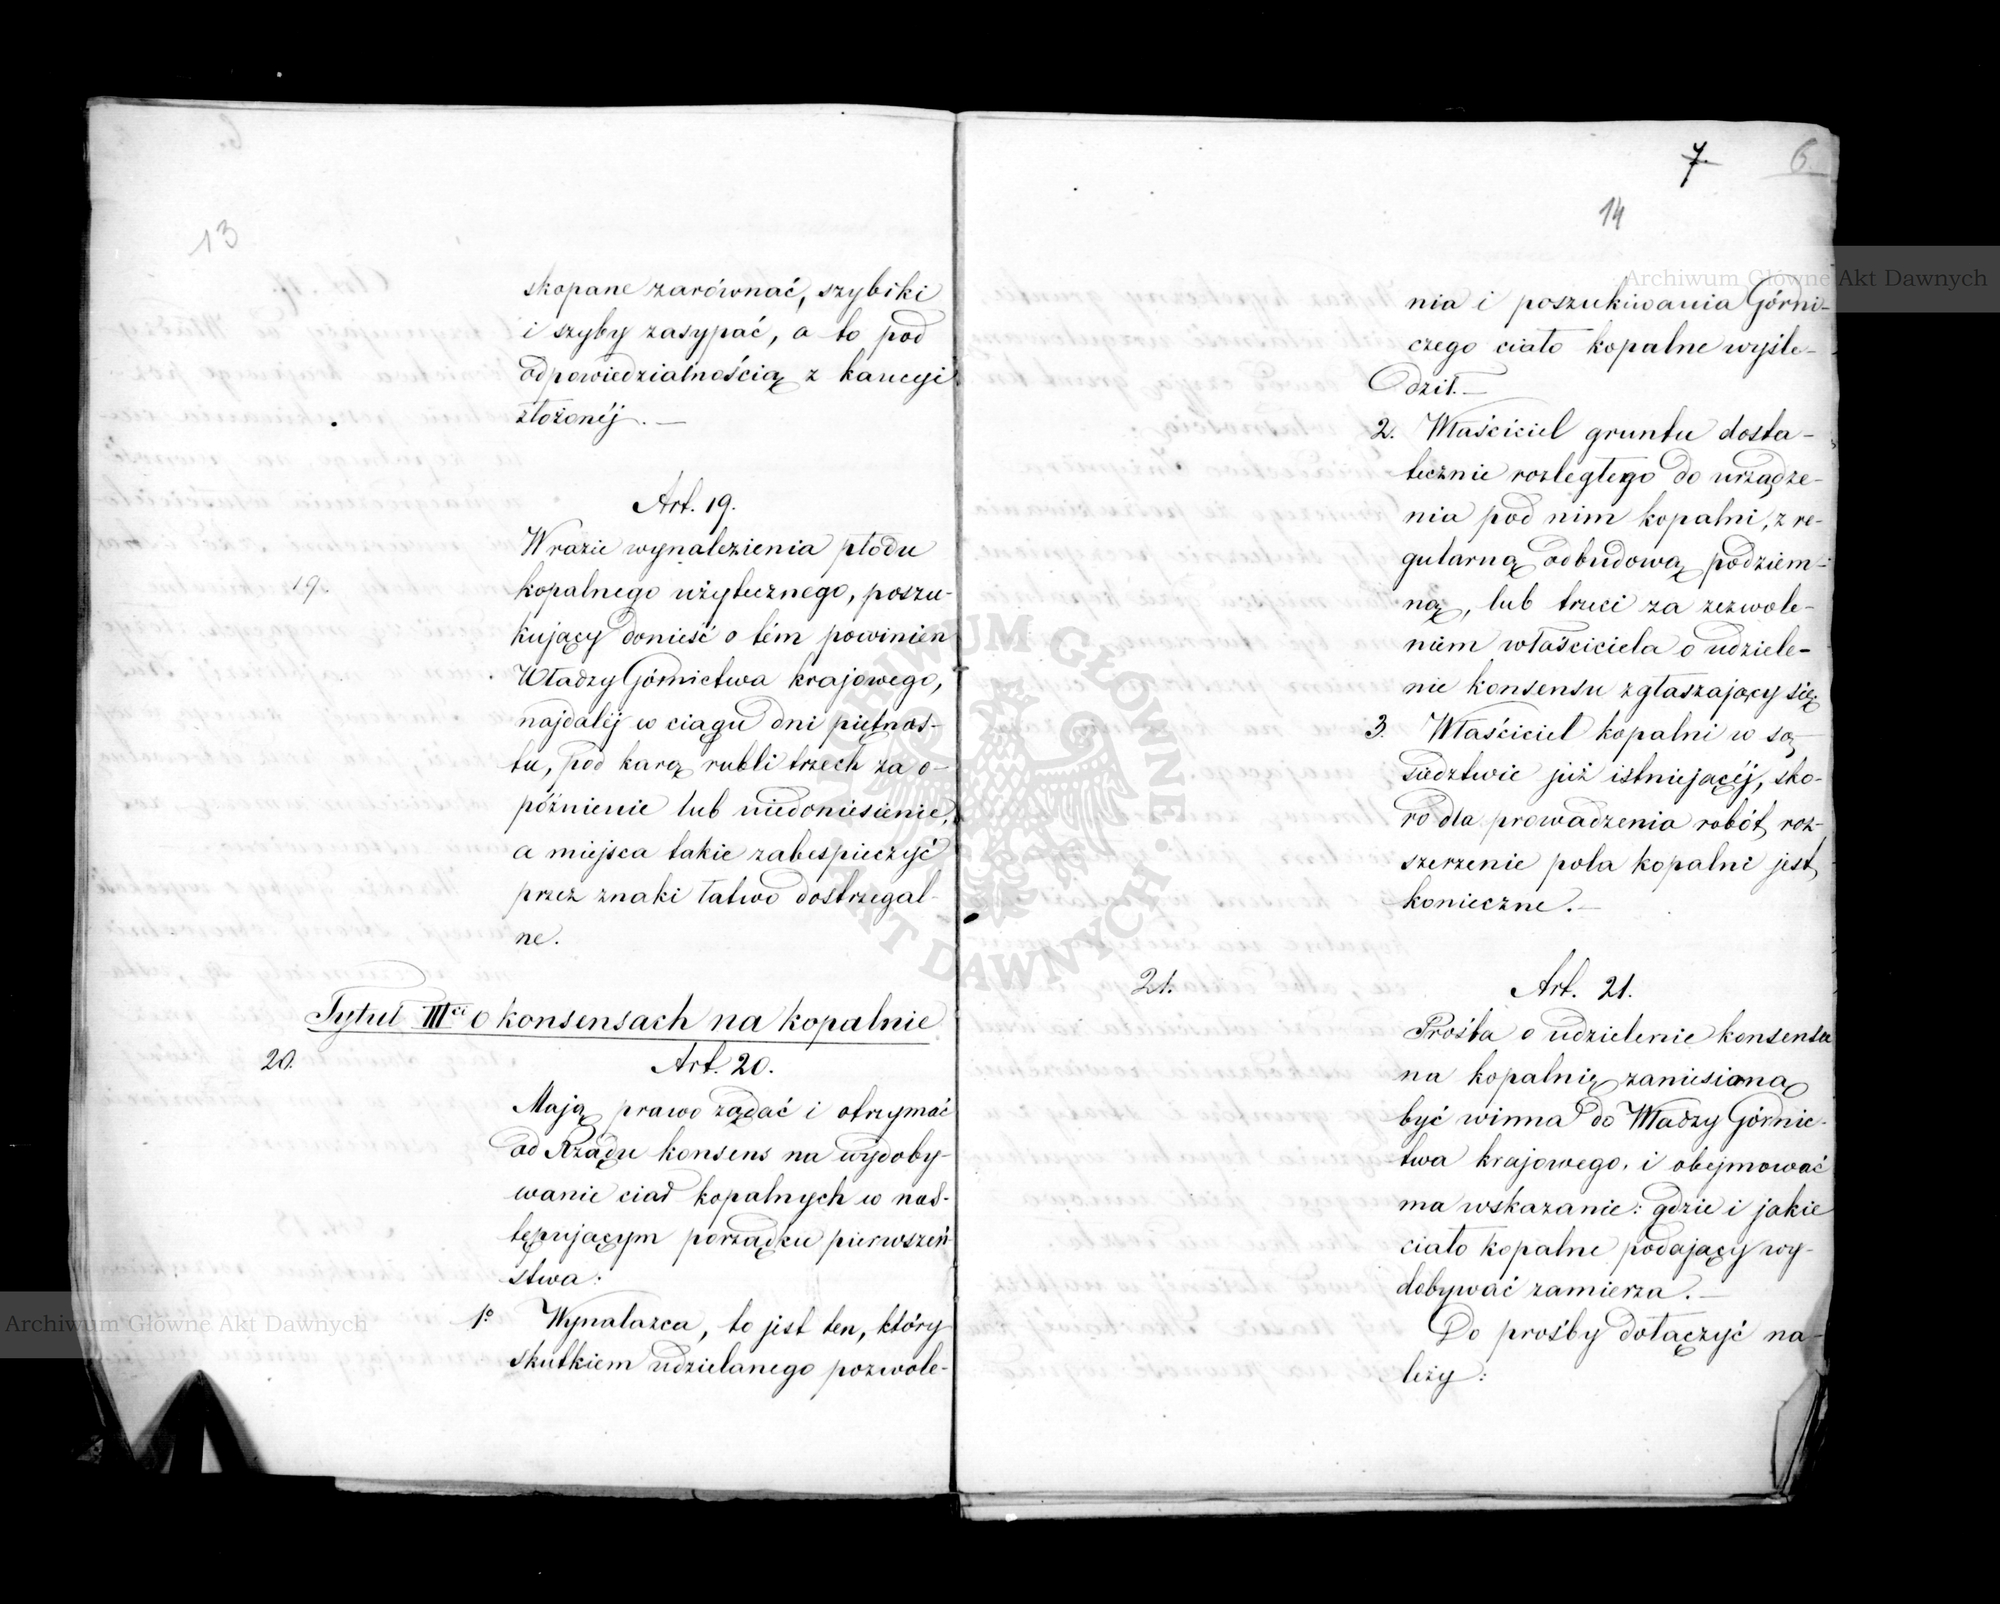 13
skopane zarównać, szybiki
i szyby zasypać, a to pod
odpowiedzialnością z kaucyi
złożonéj. —
Art. 19.
19.
W razie wynalezienia płodu
kopalnego użytecznego, poszu-
kujący donieść o tém powinien
Władzy Górnictwa krajowego,
najdaléj w ciągu dni piętnas-
tu, pod karą rubli trzech za o-
późnienie lub niedoniesienie,
a miejsca takie zabespieczyć
przez znaki łatwo dostrzegal-
ne.
Tytuł IIIci o konsensach na kopalnie
20.
Art. 20.
Mają prawo żądać i otrzymać
od Rządu konsens na wydoby-
wanie ciał kopalnych w nas-
tępującym porządku pierwszeń-
stwa:
1º Wynalazca, to jest ten, który
skutkiem udzielanego pozwole-
7.
6.
14
nia i poszukiwania Górni-
czego ciało kopalne wyśle-
dził. —
2. Właściciel gruntu dosta-
tecznie rozległego do urządze-
nia pod nim kopalni, z re-
gularną odbudową podziem-
ną, lub trzeci za zezwole-
niem właściciela o udziele-
nie konsensu zgłaszający się
3. Właściciel kopalni w są-
siedztwie już istniejącéj, sko-
ro dla prowadzenia robót, roz-
szerzenie pola kopalni jest
konieczne. —
21.
Art. 21.
Prośba o udzielenie konsensu
na kopalnią zaniesioną
być winna do Władzy Górnic-
twa krajowego, i obejmować
ma wskazanie: gdzie i jakie
ciało kopalne podający wy-
dobywać zamierza. —
Do prośby dołączyć na-
leży:
Archiwum Główne Akt Dawnych
ARCHIWUM GŁÓWNE AKT DAWNYCH
Archiwum Główne Akt Dawnych